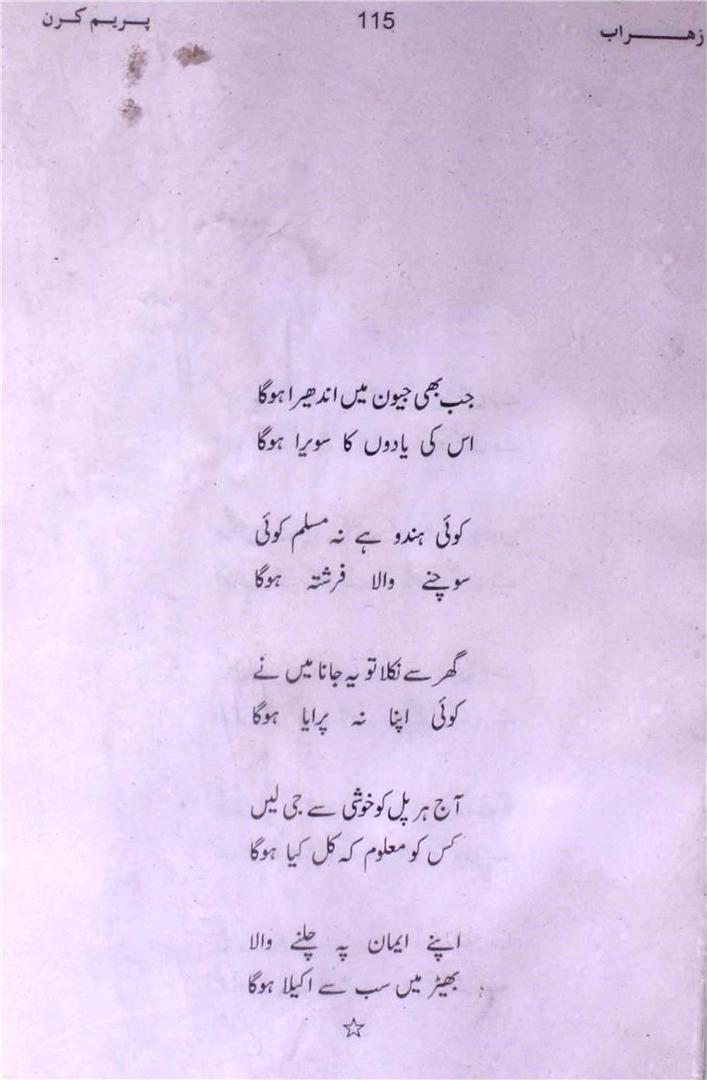 زهـــــراب 115 پـریـم کـرن
جب بھی جیون میں اندھیرا ہوگا
اس کی یادوں کا سویرا ہوگا
کوئی ہندو ہے نہ مسلم کوئی
سوچنے والا فرشتہ ہوگا
گھر سے نکلا تو یہ جانا میں نے
کوئی اپنا نہ پرایا ہوگا
آج ہر پل کو خوشی سے جی لیں
کس کو معلوم کہ کل کیا ہوگا
اپنے ایمان پہ چلنے والا
بھیڑ میں سب سے اکیلا ہوگا
☆